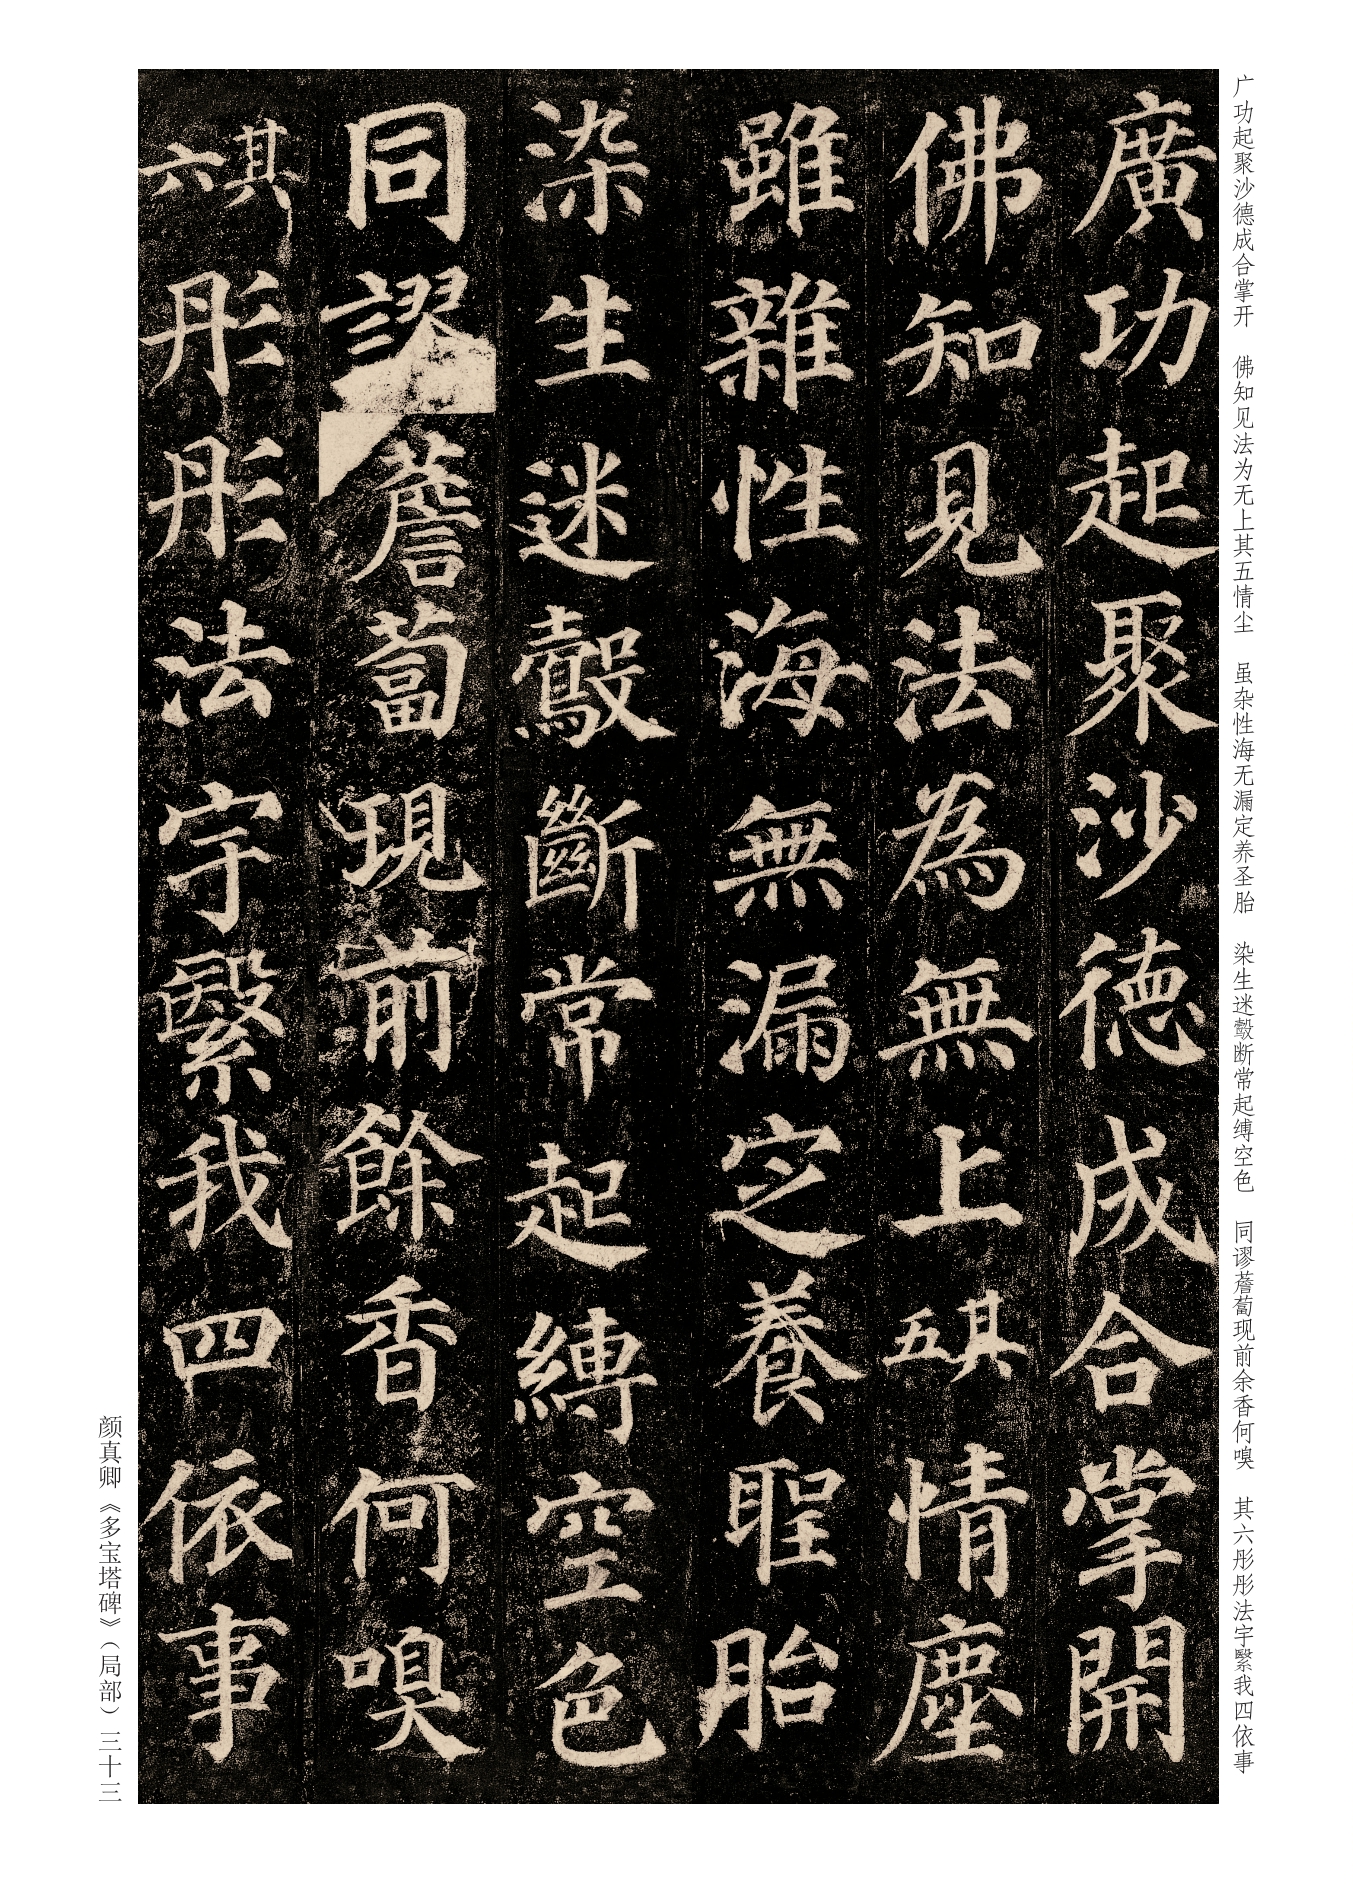 广功起聚沙德成合掌开 佛知见法为无上其五情尘 虽杂性海无漏定养圣胎 染生迷鷇断常起缚空色 同谬薝蔔现前余香何嗅 其六彤彤法宇繄我四依事
廣功起聚沙德成合掌開
佛知見法為無上其五情塵
雖雜性海無漏定養聖胎
染生迷鷇斷常起縛空色
同謬薝蔔現前餘香何嗅
其六彤彤法宇繄我四依事
颜真卿《多宝塔碑》（局部）三十三